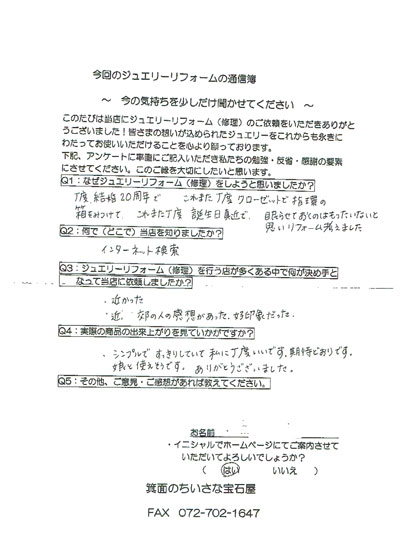 今回のジュエリーリフォームの通信簿
～ 今の気持ちを少しだけ聞かせてください ～
このたびは当店にジュエリーリフォーム（修理）のご依頼をいただきありがと
うございました！皆さまの想いが込められたジュエリーをこれからも永きに
わたってお使いいただけることを心より願っております。
下記、アンケートに率直にご記入いただき私たちの勉強・反省・感謝の要素
にさせてください。このご縁を大切にしたいと思います。
Q1：なぜジュエリーリフォーム（修理）をしようと思いましたか？
丁度 結婚20周年で これまた丁度 クローゼットで 指環の
箱をみつけて、これまた丁度 誕生日真近で、眠らせておくのはもったいないと
思いリフォーム考えました
Q2：何で（どこで）当店を知りましたか？
インターネット検索
Q3：ジュエリーリフォーム（修理）を行う店が多くある中で何が決め手と
なって当店に依頼しましたか？
・近かった
・近郊の人の感想があった、好印象だった。
Q4：実際の商品の出来上がりを見ていかがですか？
・シンプルで すっきりしていて 私に丁度いいです。期待どおりです。
娘と使えそうです。ありがとうございました。
Q5：その他、ご意見・ご感想があれば教えてください。
お名前
・イニシャルでホームページにてご案内させて
いただいてよろしいでしょうか？
（ はい いいえ ）
箕面のちいさな宝石屋
FAX 072-702-1647